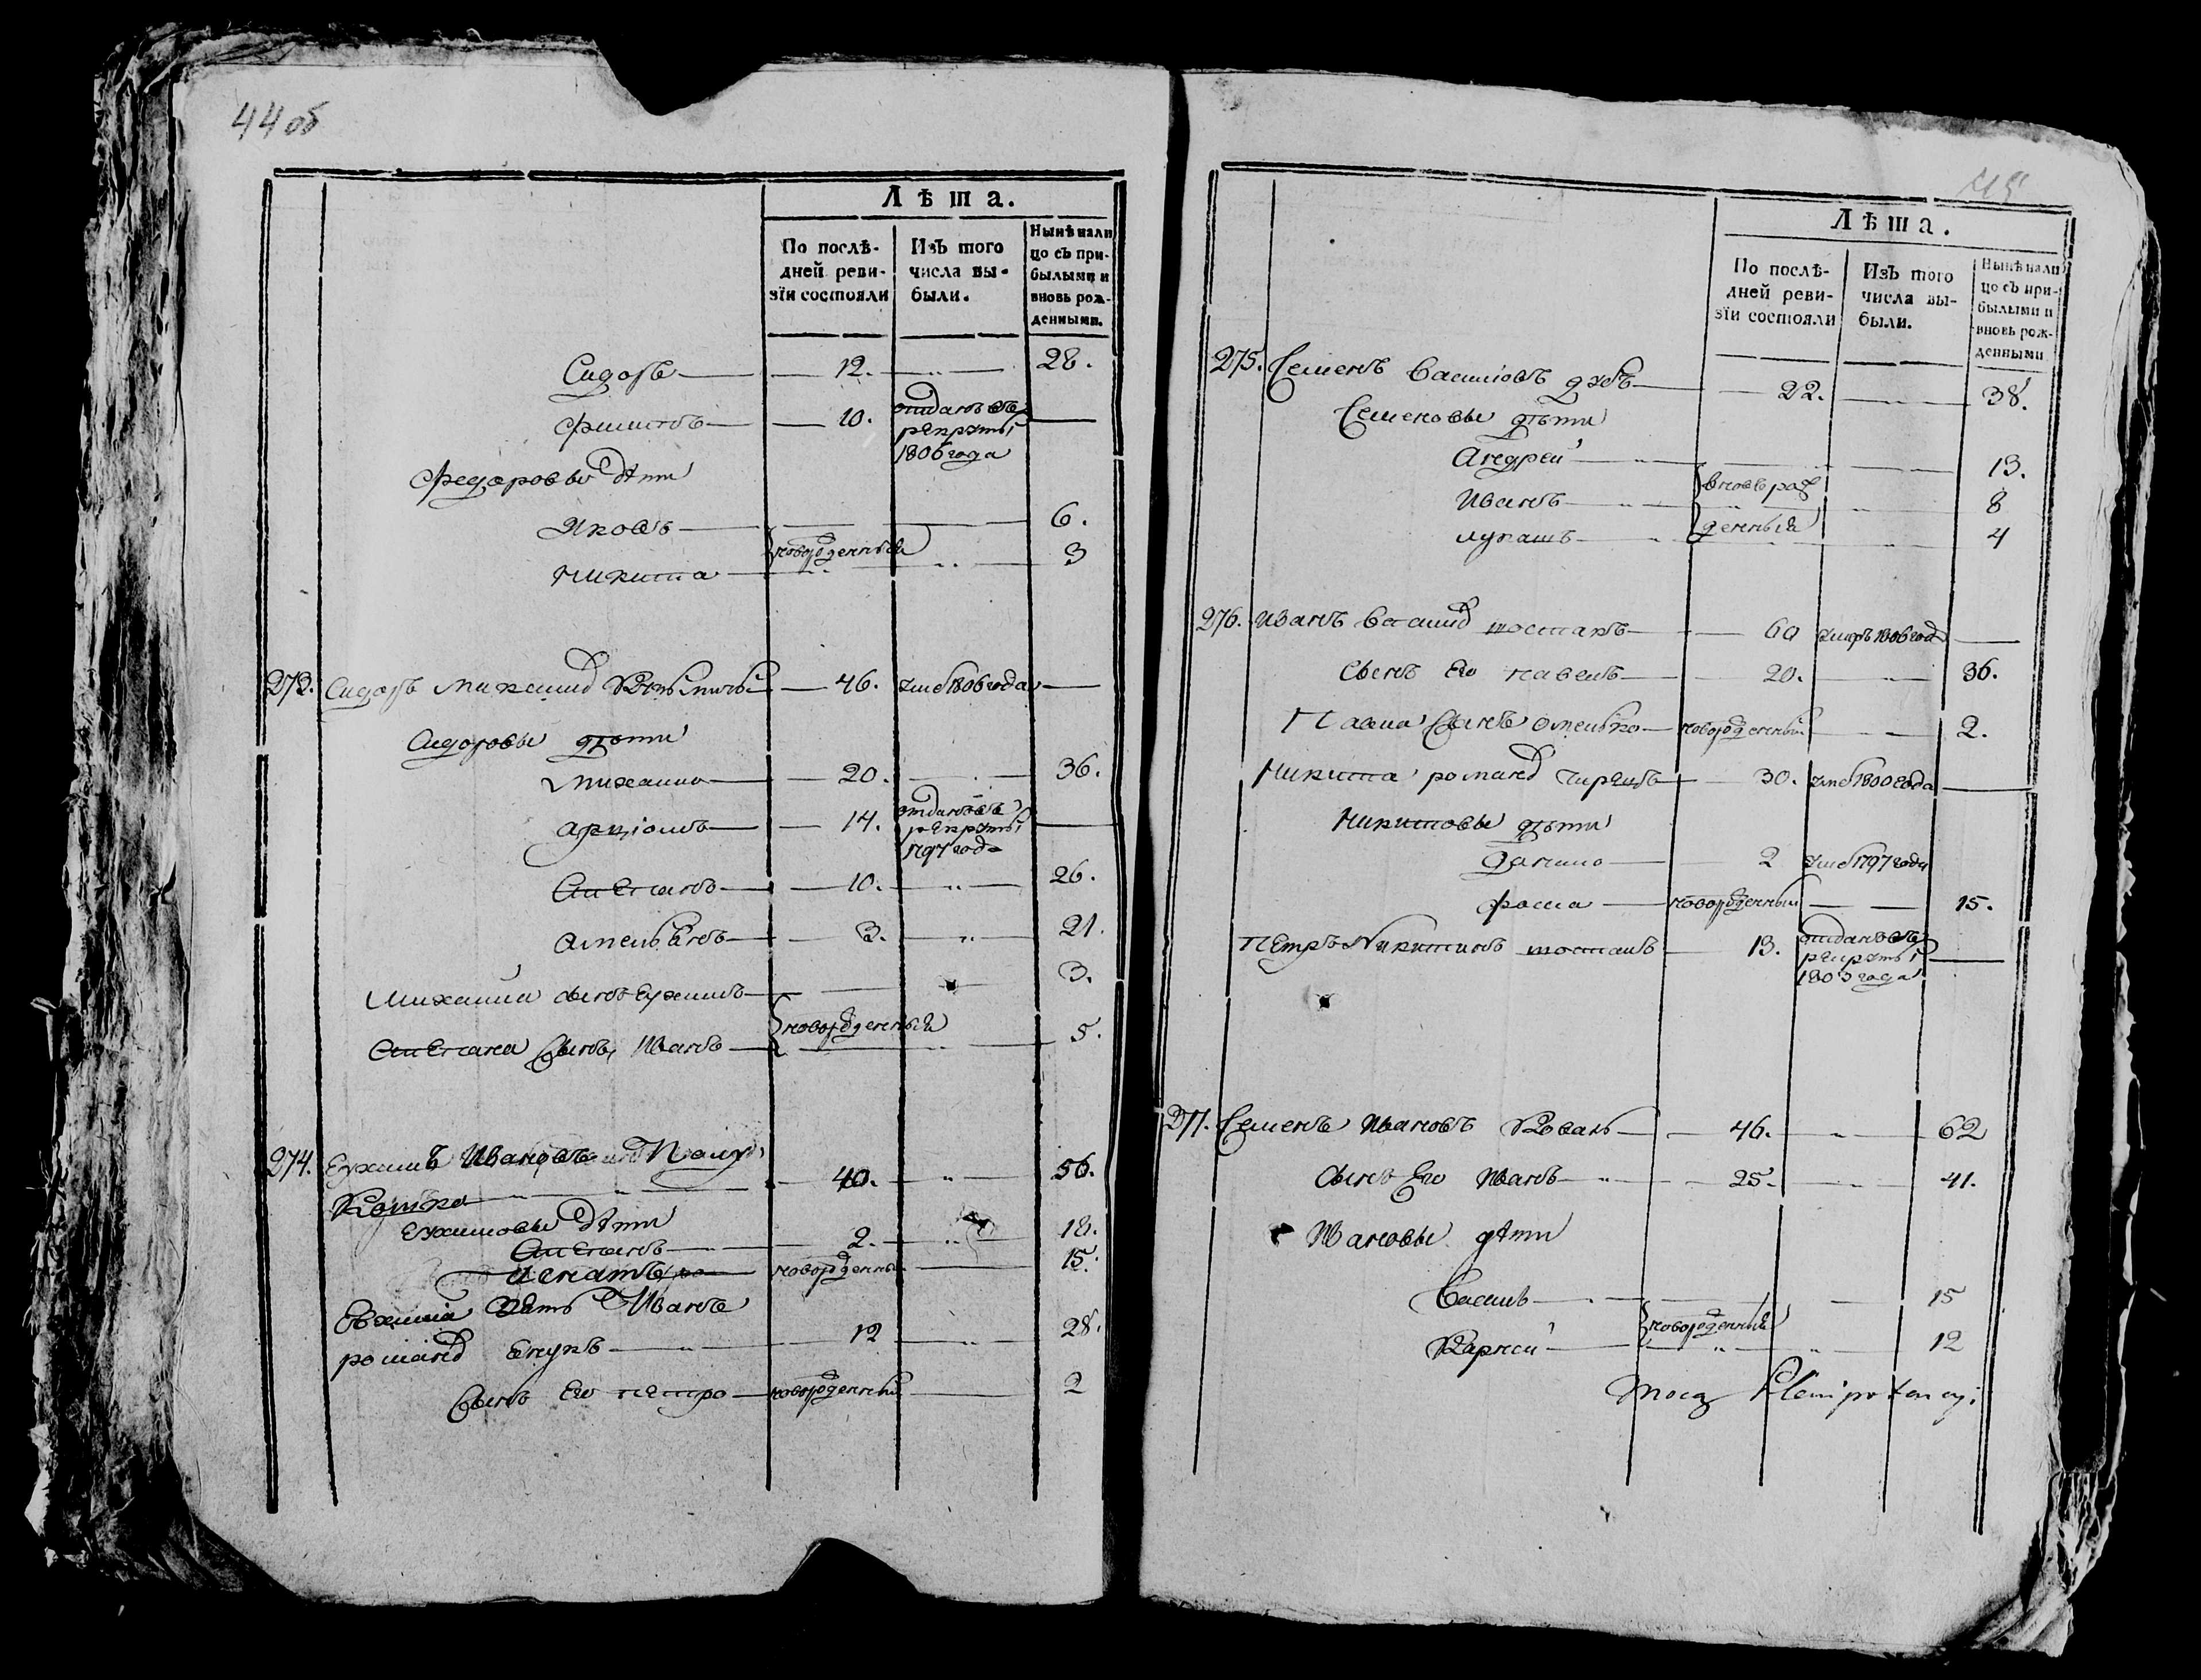 44 об
Лѣта.
По послѣ-
дней реви-
зїи состояли
Изъ того
числа вы-
были.
Нынѣ нали
цо съ при-
былыми и
вновь рож-
денными.
Сидоръ 12. 28.
Филипъ 10. отданъ въ
рекруты
1806 года
Федоровы дѣти
Яковъ 6.
новорожденный
Никита 3
273. Сидоръ Михайлов 46. умеръ 1806 года
Сидоровы дѣти
Михайло 20. 36.
Арціомъ 14. отданъ въ
рекруты
1797 года
Степанъ 10. 26.
Омельянъ 3. 21.
Михайла сынъ Еухимъ 3.
новорожденный
Степана Сынъ Иванъ 5.
274. Еухимъ Ивановъ
40. 56.
Еухимовы дѣти
Степанъ 2. 18.
Игнатъ новорожденный 15.
Евхима зять Иванъ
романов 12 28.
Сынъ Его петро новорожденный 2
45
Лѣта.
По послѣ-
дней реви-
зїи состояли
Изъ того
числа вы-
были.
Нынѣ нали
цо съ при-
былыми и
вновь рож-
денными
275. Семенъ Василіовъ 22. 38.
Семеновы дѣти
Андрей 13.
вновь рож
Иванъ 8
денный
лукашъ 4
276. Иванъ 60 умеръ 1806 год
Сынъ Его павелъ 20. 36.
Павла Сынъ Омелько новорожденный 2.
Никита романов 30. умеръ 1800 года
Никитовы дѣти
Данило 2 умеръ 1797 года
фома новорожденный 15.
Петръ Никитинъ 13. отданъ въ
рекруты
1803 года
277. Семенъ Ивановъ Коваль 46. 62
Сынъ Его Иванъ 25. 41.
Ивановы дѣти
Василь 15
новорожденный
Карней 12